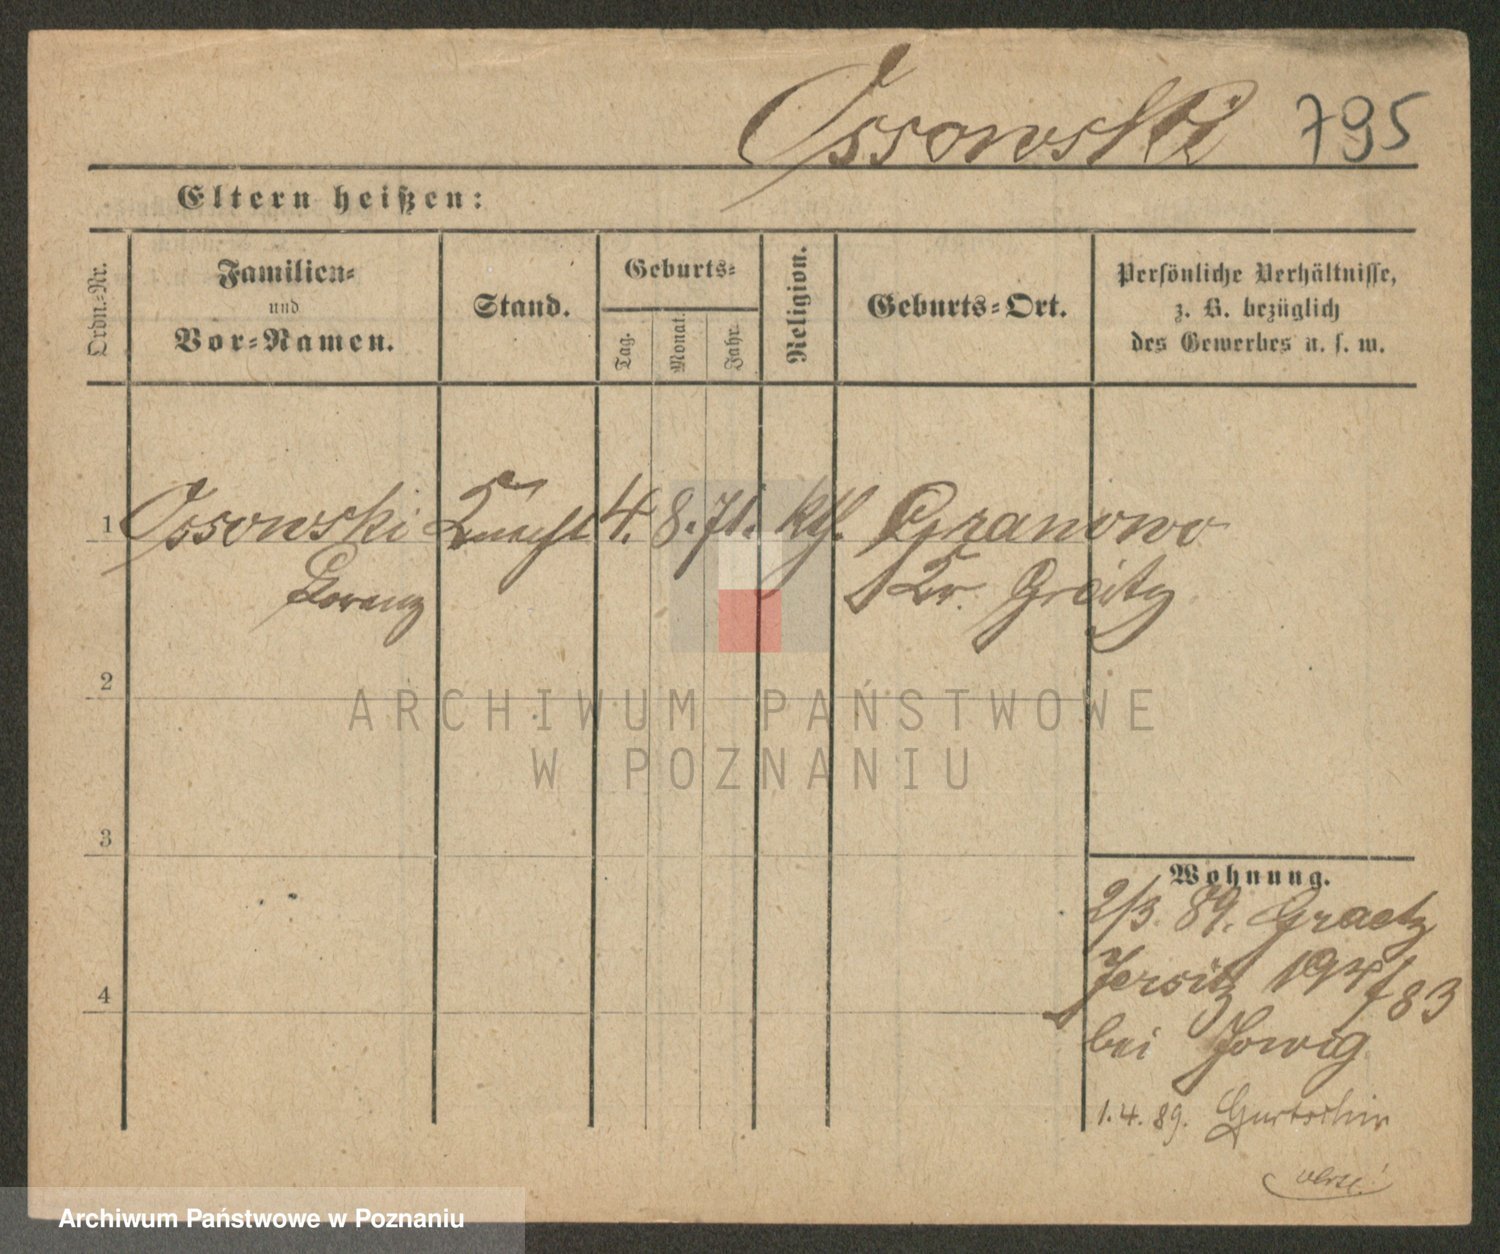 Ossowski 795
Eltern heißen:
Ordn.-Nr.
Familien-
und
Vor-Namen.
Stand.
Geburts-
Tag.
Monat.
Jahr.
Religion.
Geburts-Ort.
Persönliche Verhältnisse,
z. B. bezüglich
des Gewerbes u. s. w.
1 Ossowski Knecht 4. 8. 71. kth. Granowo
Lorenz Kr. Graitz
2
3
4
Wohnung.
2/3. 89. Graetz
Jersitz
bei
1. 4. 89. Gurtschin
ARCHIWUM PAŃSTWOWE
W POZNANIU
Archiwum Państwowe w Poznaniu